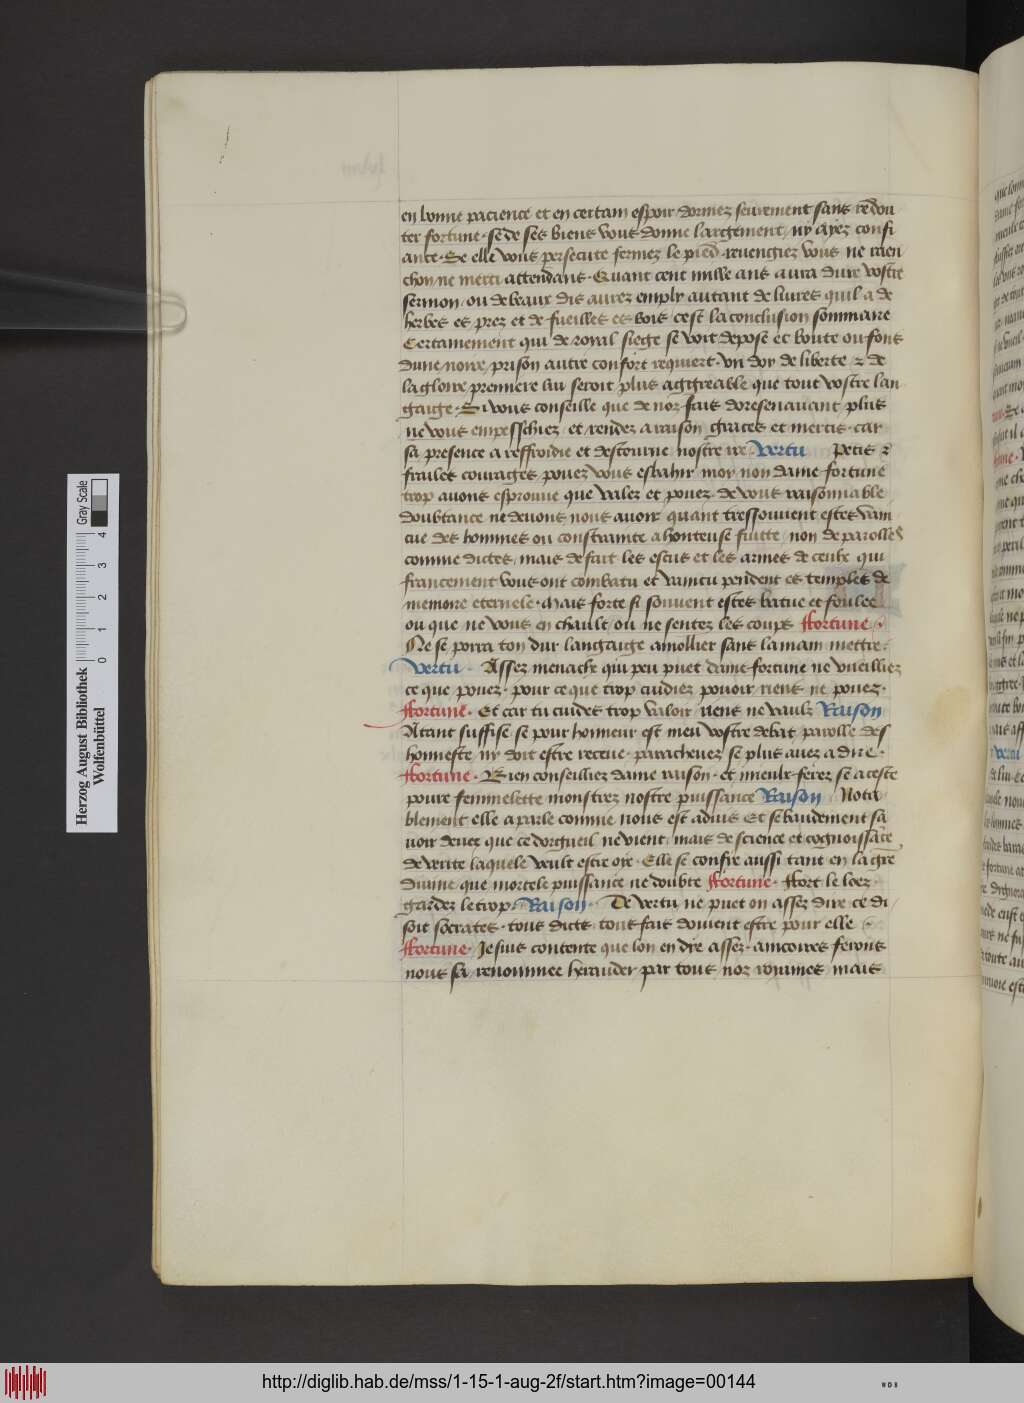 en bonne pacience et en certain espoir dormez seurement sans redou
ter fortune · se de ses biens vous donne largement / ny ayez confi
ance · Se elle vous persecute fermez le pied · revengiez vous ne raen
chon ne merci attendans · Quant cent mille ans aura dure vostre
sermon / ou de beaux dis aurez emply autant de livres quil a de
herbes es prez et de fueilles es bois cest la conclusion sommaire
Certainement qui de royal siege se voit depose et boute ou fons
dune noire prison autre confort requiert · un doy de liberte / et de
la gloire premiere lui seroit plus aggreable que tout vostre lan
gaige · Si vous conseille que de noz fais doresenavant plus
ne vous empeschiez / et rendez a raison graces et mercis · car
sa presence a reffroidie et destourne nostre ire · Vertu Petis et
frailes courages povez vous esbahir moy non dame fortune
trop avons esprouve que valez et povez · de vous raisonnable
doubtance ne devons nous avoir quant tressouvent estes vain
cue des hommes ou constrainte a honteuse fuitte / non de parolles
comme dictes / mais de fait les escus et les armes de ceulx qui
francement vous ont combatu et vaincu pendent es temples de
memoire eternele · Mais forte si souvent estes batue et foulee
ou que ne vous en chault / ou ne sentez les coups Fortune ·
Ne se porra ton dur langaige amollier sans la main mettre :
Vertu · Assez menache qui peu puet dame fortune ne vueilliez
ce que povez · pour ce que trop cudiez povoir riens ne povez ·
Fortune · Et car tu cuides trop valoir riens ne vaulz Raison
Atant suffise se pour honneur est meu vostre debat parolle des
honneste ny doit estre receue · parachevez se plus avez a dire ·
Fortune · Bien conseilliez dame raison · et mieulx ferez se a ceste
poure femmelette monstrez nostre puissance Raison Nota
blement elle a parle comme nous est advis Et se baudement sa
voir devez que ce dorgueil ne vient / mais de science et cognoissance
de verite laquele veult estre oye · Elle se confie aussi tant en la gre
divine que mortele puissance ne doubte Fortune · Fort le loez
gardez le trop · Raison · De vertu ne puet on assez dire ce di
soit socrates · tous dicts / tous fais doivent estre pour elle ·
Fortune · Je suis contente que lon en die assez · aincoires ferons
nous sa renommee herauder par tous noz royames mais
Herzog August Bibliothek
Wolfenbüttel
Gray Scale
0 1 2 3 4
http://diglib.hab.de/mss/1-15-1-aug-2f/start.htm?image=00144